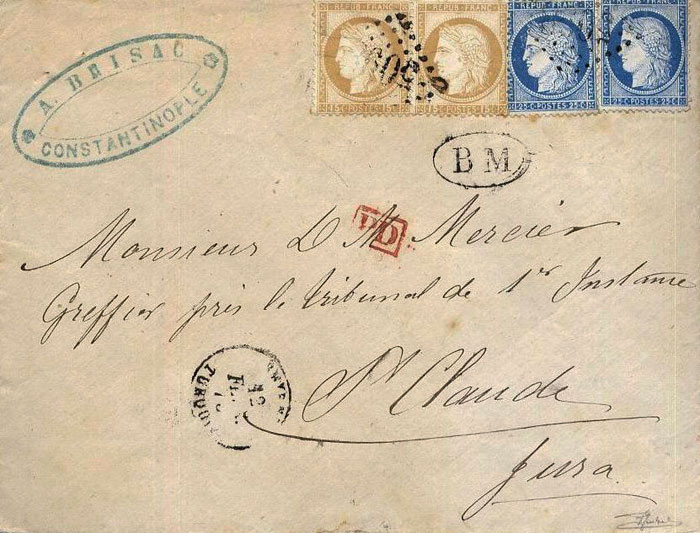 A. BRISAC
CONSTANTINOPLE
REPUB. FRANC.
15 C. POSTES 15 C.
REPUB. FRANC.
15 C. POSTES 15 C.
REPUB. FRANC.
25 C. POSTES 25 C.
REPUB. FRANC.
25 C. POSTES 25 C.
BM
PD
Monsieur D. M. Mercier
Greffier près le tribunal de 1er Instance
St Claude
Jura.
12